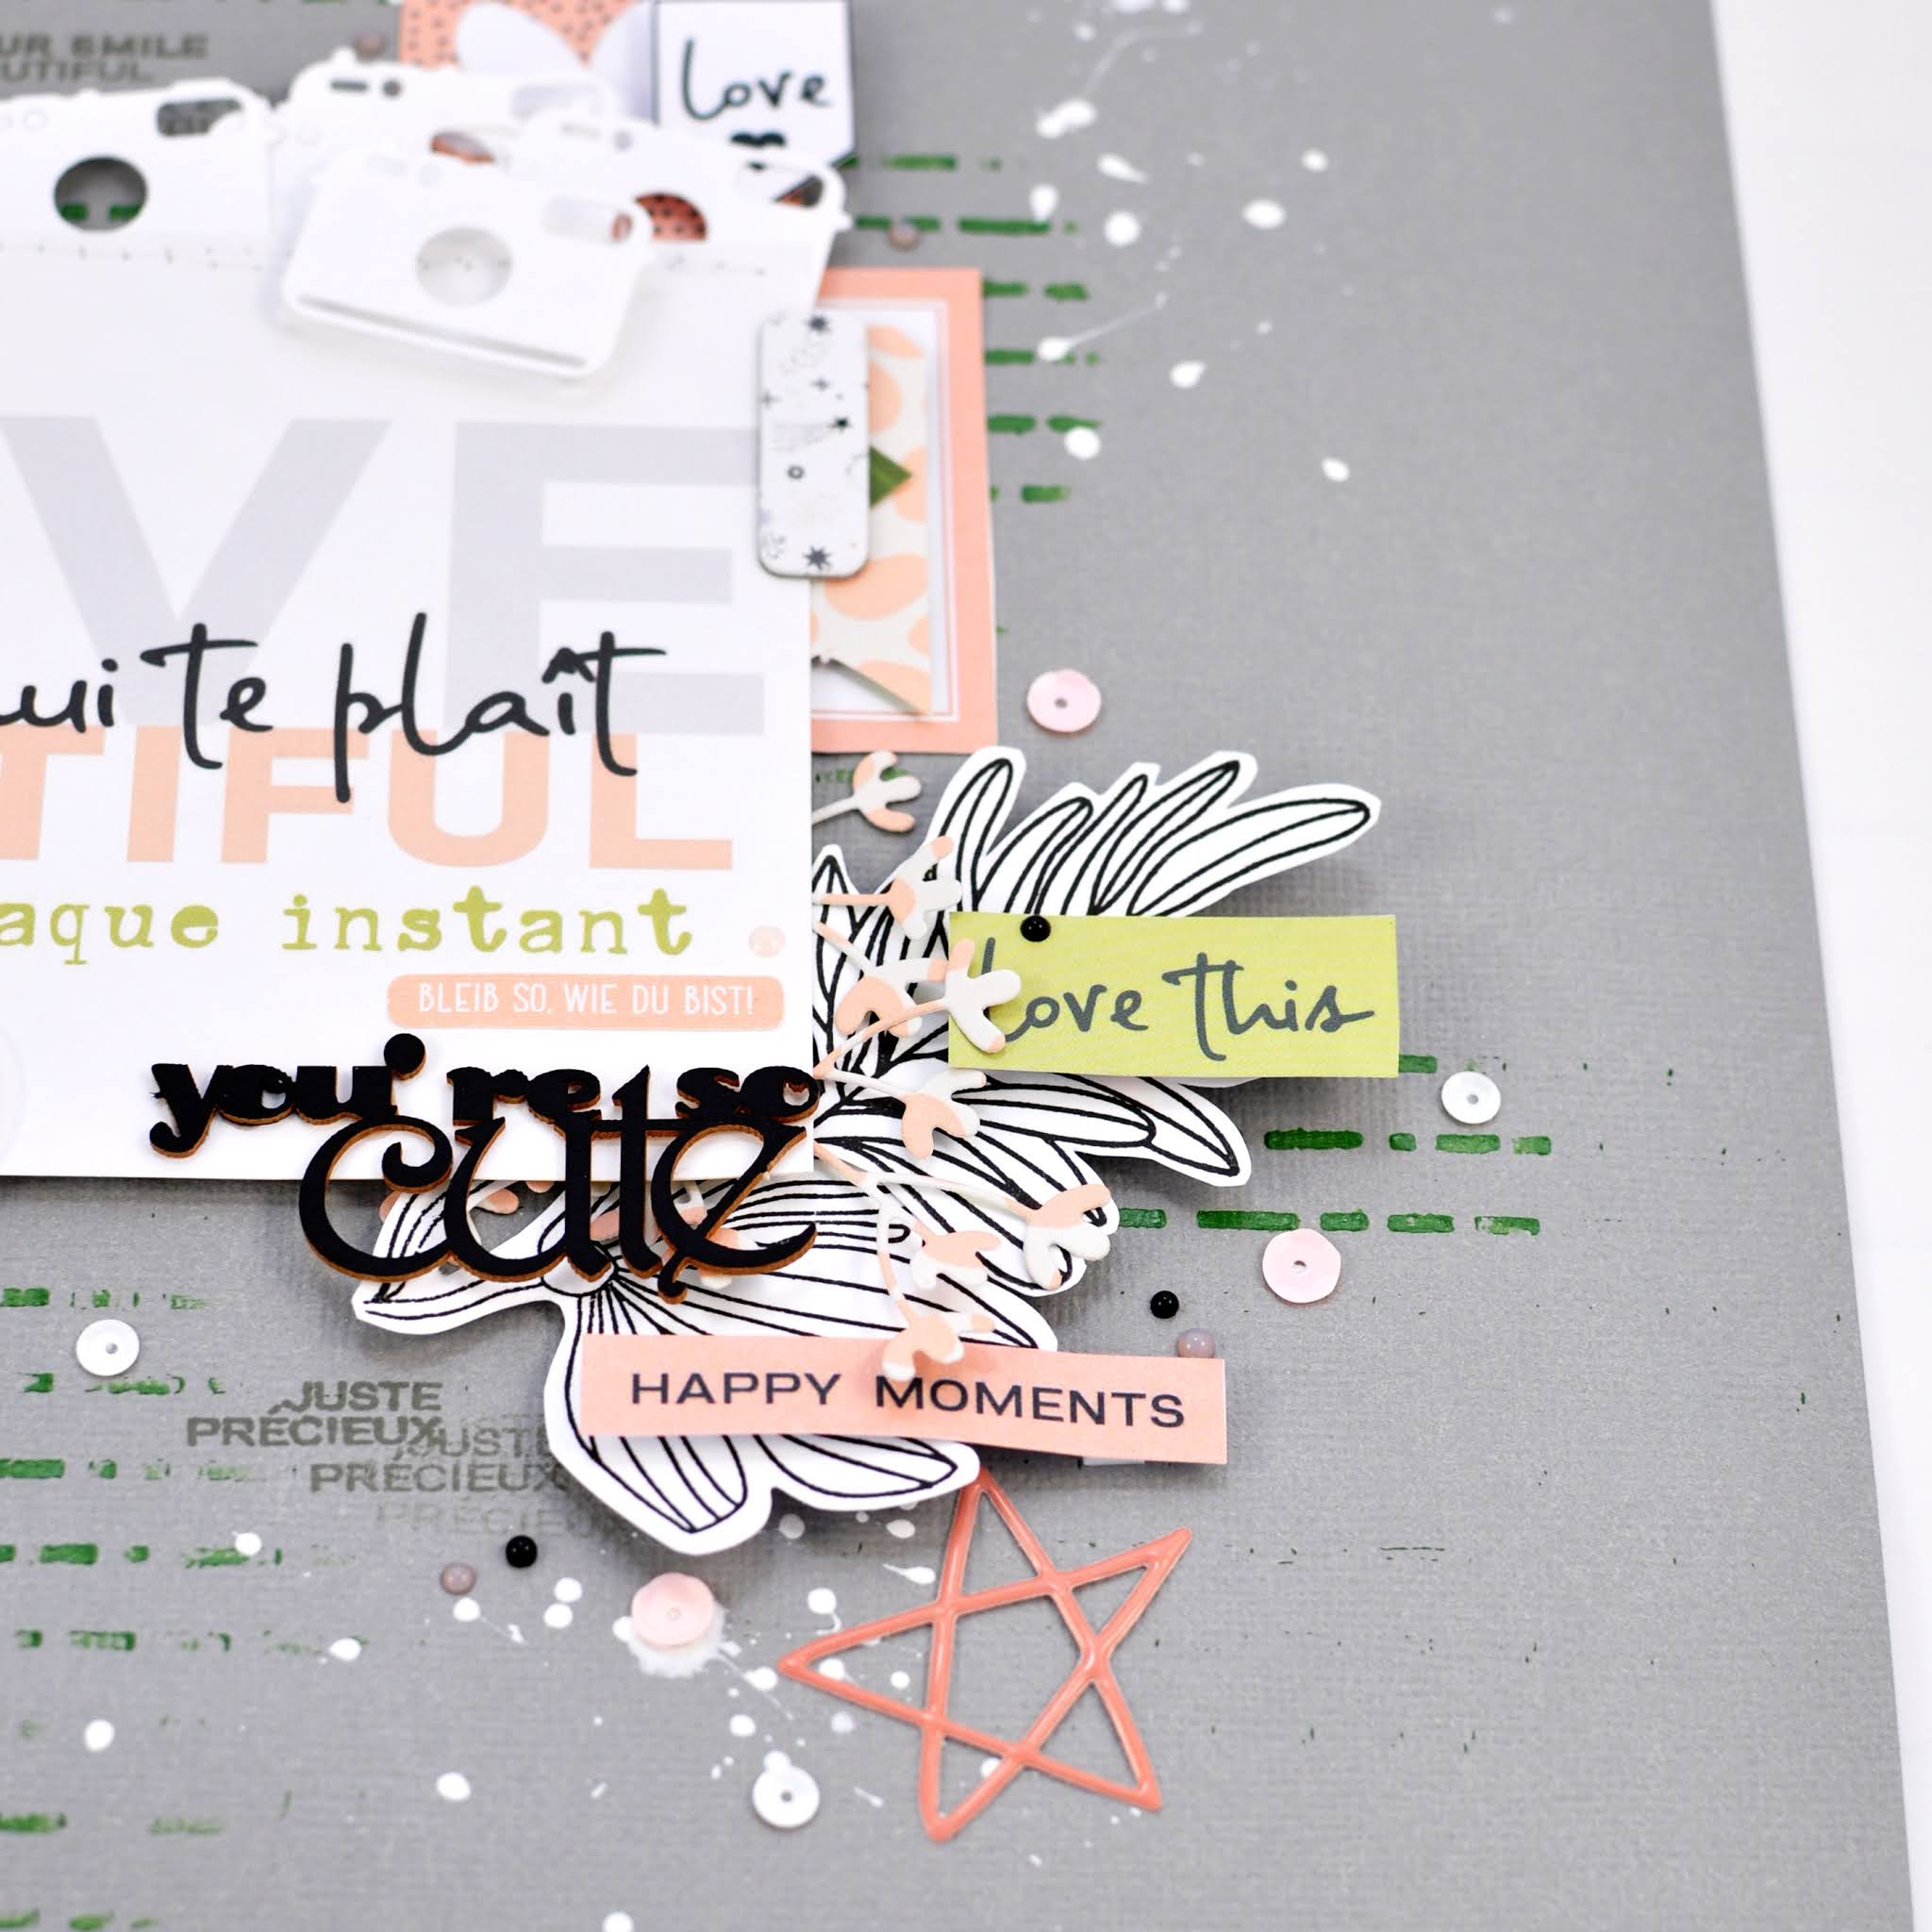 UR SMILE
UTIFUL
love
VE
ui te plaît
TIFUL
aque instant
BLEIB SO, WIE DU BIST!
love this
you're so
cute
HAPPY MOMENTS
JUSTE
PRÉCIEUX
JUSTE
PRÉCIEUX
PRÉCIEUX